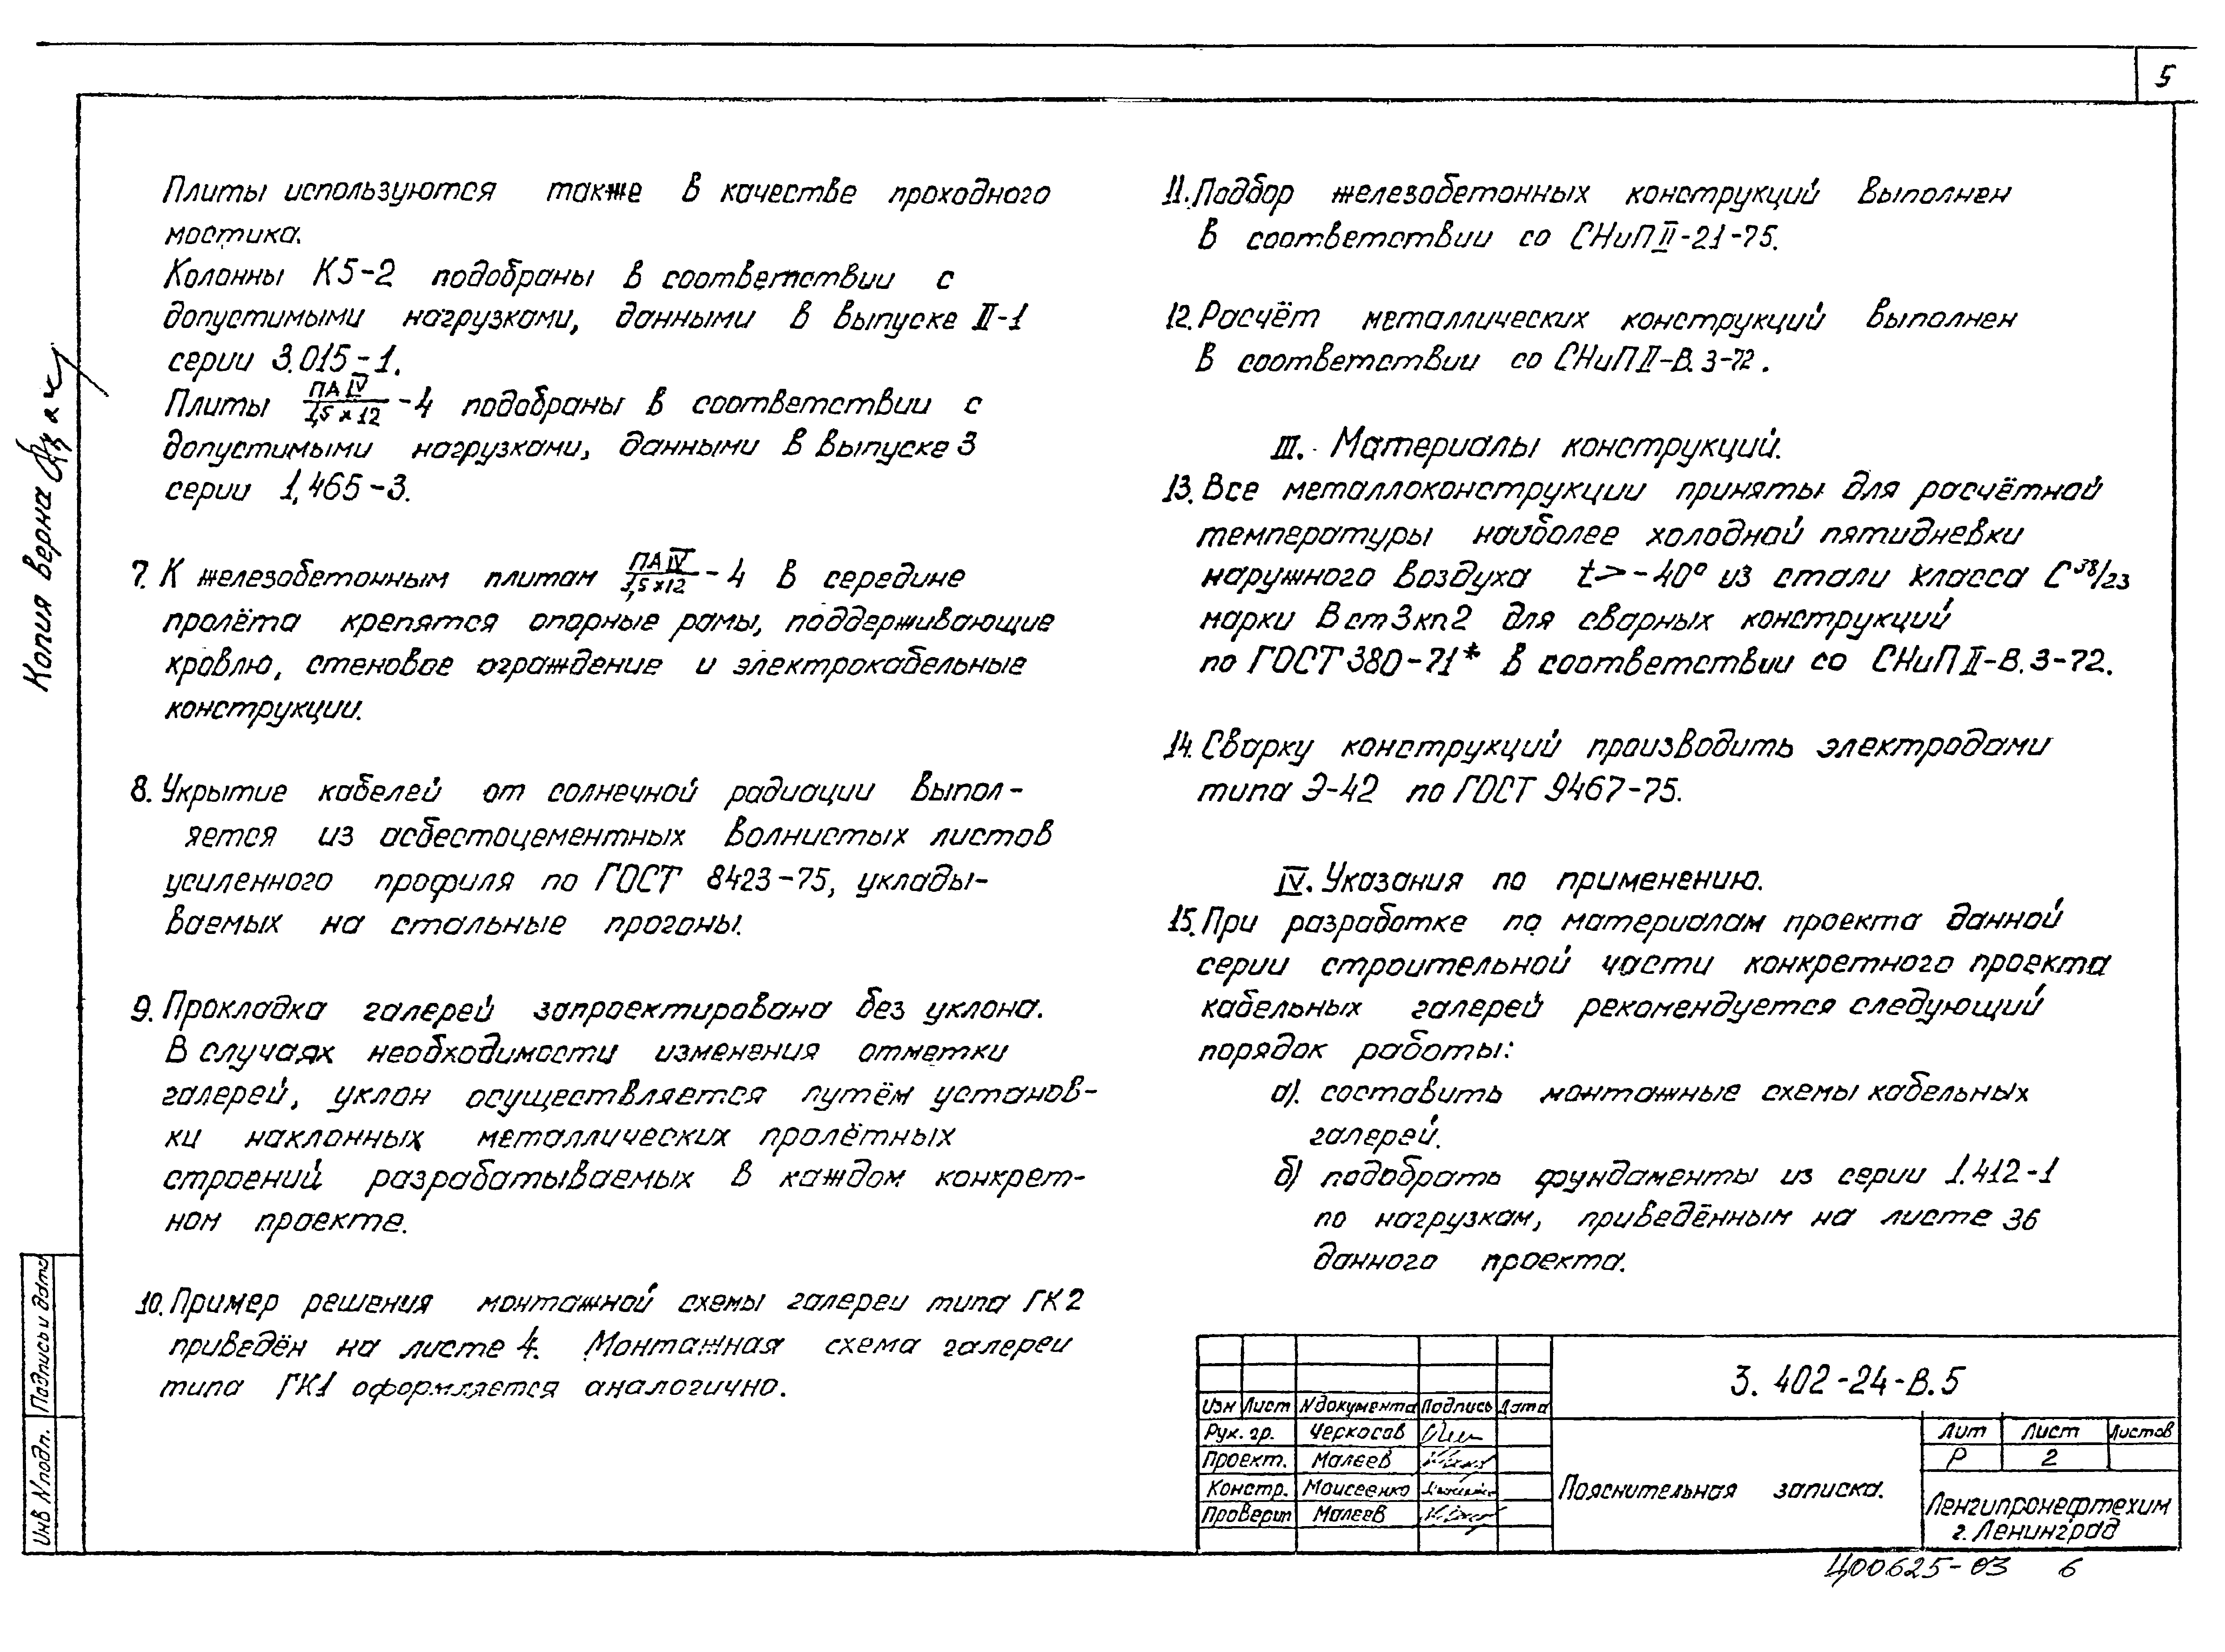 5
Плиты используются также в качестве проходного
мостика.
Колонны К5-2 подобраны в соответствии с
допустимыми нагрузками, данными в выпуске II-1
серии 3.015-1.
Плиты ПАIV/1,5×12-4 подобраны в соответствии с
допустимыми нагрузками, данными в выпуске 3
серии 1.465-3.
7. К железобетонным плитам ПАIV/1,5×12-4 в середине
пролёта крепятся опорные рамы, поддерживающие
кровлю, стеновое ограждение и электрокабельные
конструкции.
8. Укрытие кабелей от солнечной радиации выпол-
яется из асбестоцементных волнистых листов
усиленного профиля по ГОСТ 8423-75, уклады-
ваемых на стальные прогоны.
9. Прокладка галерей запроектирована без уклона.
В случаях необходимости изменения отметки
галерей, уклон осуществляется путём установ-
ки наклонных металлических пролётных
строений разрабатываемых в каждом конкрет-
ном проекте.
10. Пример решения монтажной схемы галереи типа ГК2
приведён на листе 4. Монтажная схема галереи
типа ГК1 оформляется аналогично.
11. Подбор железобетонных конструкций выполнен
в соответствии со СНиП II-21-75.
12. Расчёт металлических конструкций выполнен
в соответствии со СНиП II-В.3-72.
III. Материалы конструкций.
13. Все металлоконструкции приняты для расчётной
температуры наиболее холодной пятидневки
наружного воздуха t>-40° из стали класса С38/23
марки Вст3кп2 для сварных конструкций
по ГОСТ 380-71* в соответствии со СНиП II-В.3-72.
14. Сварку конструкций производить электродами
типа Э-42 по ГОСТ 9467-75.
IV. Указания по применению.
15. При разработке по материалам проекта данной
серии строительной части конкретного проекта
кабельных галерей рекомендуется следующий
порядок работы:
а). составить монтажные схемы кабельных
галерей.
б) подобрать фундаменты из серии 1.412-1
по нагрузкам, приведённым на листе 36
данного проекта.
Копия верна
Подпись и дата
Инв N подл.
3.402-24-В.5
Изм Лист N документа Подпись Дата
Рук. гр. Черкасов
Проект. Малеев
Констр. Моисеенко
Проверил Малеев
Пояснительная записка.
Лит Лист Листов
Р 2
Ленгипронефтехим
г. Ленинград
Ц00625-03 6